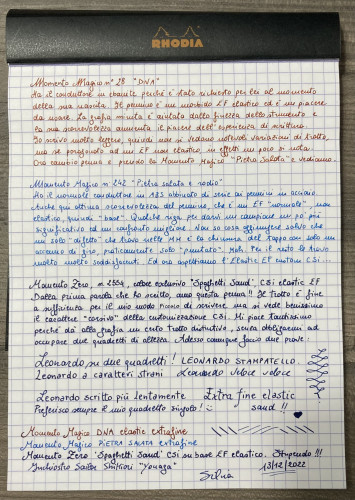 RHODIA
Momento Magico n° 28 "DNA"
Ha il conduttore in ebanite perché è stato richiesto per lei al momento
della sua nascita. Il pennino è un morbido EF elastico ed è un piacere
da usare. La grafia minuta è aiutata dalla finezza dello strumento e
la sua scorrevolezza aumenta il piacere dell'esperienza di scrittura.
Io scrivo molto leggera, quindi non si vedono notevoli variazioni di tratto,
ma se paragonato ad un EF non elastico, in effetti un poco si nota.
Ora cambio penna e prendo la Momento Magico "Pietra Salata" e vediamo.
Momento Magico n° 242 "Pietra salata e rodio"
Ha il normale conduttore in ABS abbinato di serie ai pennini in acciaio.
Anche qui ottima scorrevolezza del pennino, che è un EF "normale", non
elastico, quindi "base". Qualche riga per darvi un campione un po' più
significativo ed un confronto migliore. Non so cosa aggiungere salvo che
un solo "difetto" che trovo nelle MM è la chiusura del tappo con solo un
accenno di giro, praticamente solo "puntato". Mah. Per il resto le trovo
molto molto soddisfacenti. Ed ora aspettiamo l'Elastic EF custom CSi...
Momento Zero, n. 2554, colore esclusivo "Spaghetti Saud", CSi elastic EF
Dalla prima parola che ho scritto, amo questa penna!! Il tratto è fine
a sufficienza per il mio modo nano di scrivere, ma si vede benissimo
il carattere "corsivo" della customizzazione CSi. Mi piace tantissimo
perché dà alla grafia un certo tratto distintivo, senza obbligarmi ad
occupare due quadretti di altezza. Adesso comunque faccio due prove:
Leonardo su due quadretti! LEONARDO STAMPATELLO
Leonardo a caratteri strani Leonardo veloce veloce
Leonardo scritto più lentamente Extra fine elastic
Preferisco sempre il mio quadretto singolo! saud!!
Momento Magico DNA elastic extrafine
Momento Magico PIETRA SALATA extrafine
Momento Zero "Spaghetti Saud" CSi su base EF elastico. Stupendo!!!
Inchiostro Sailor Shikiori "Yonaga" 13/12/2022
Silvia